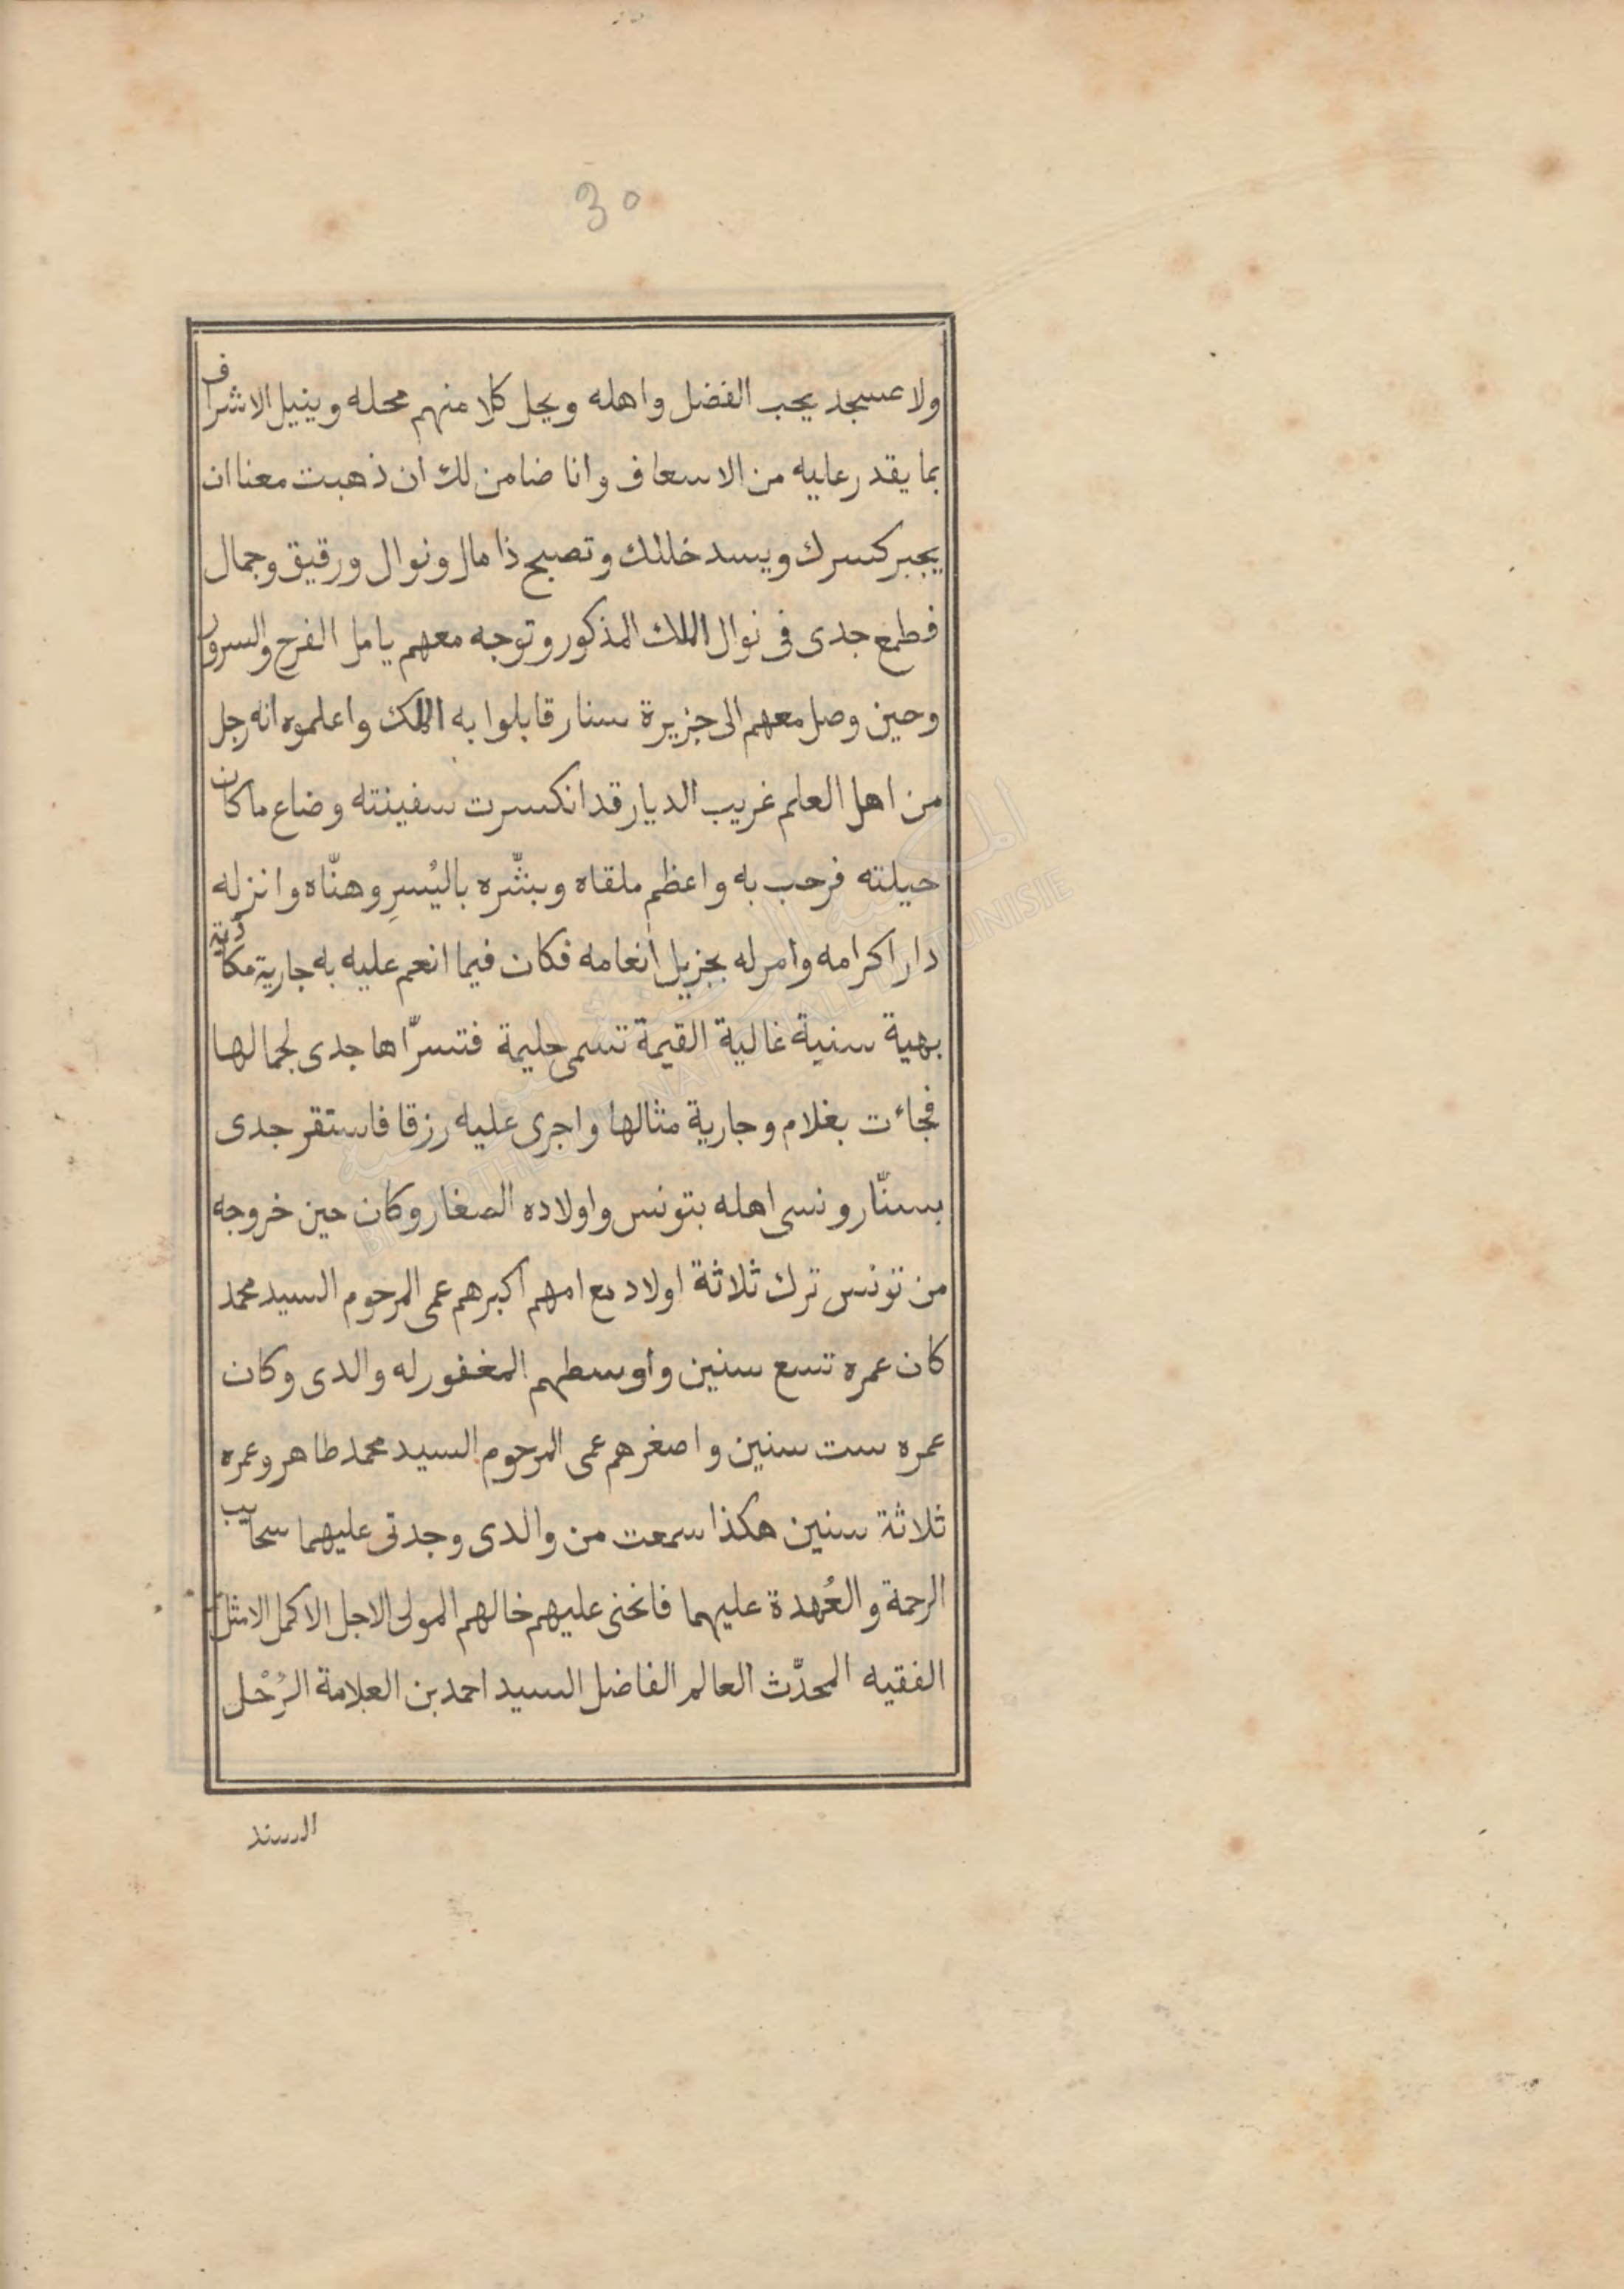 30
ولا عسجد يحب الفضل واهله ويحل كلا منهم محله وينيل الاشراف
بما يقدر عليه من الاسعاف وانا ضامن لك ان ذهبت معنا ان
يجبر كسرك ويسد خللك وتصبح ذا مال ونوال ورقيق وجمال
فطمع جدى فى نوال الملك المذكور وتوجه معهم يامل الفرح والسرور
وحين وصل معهم الى جزيرة سنار قابلوا به الملك واعلموه انه رجل
من اهل العلم غريب الديار قد انكسرت سفينته وضاع ما كان
حيلته فرحب به واعظم ملقاه وبشّره باليُسرِ وهنّاه وانزله
دار اكرامه وامر له بجزيل انعامه فكان فيما انعم عليه به جارية مكادية
بهية سنية غالية القيمة تسمى حليمة فتسرّاها جدى لجمالها
فجاءت بغلام وجارية مثالها واجرى عليه رزقا فاستقر جدى
بسنّار ونسى اهله بتونس واولاده الصغار وكان حين خروجه
من تونس ترك ثلاثة اولاد مع امهم اكبرهم عمى المرحوم السيد محمد
كان عمره تسع سنين واوسطهم المغفور له والدى وكان
عمره ست سنين واصغرهم عمى المرحوم السيد محمد طاهر وعمره
ثلاثة سنين هكذا سمعت من والدى وجدتى عليهما سحايب
الرحمة والعُهدة عليهما فانحنى عليهم خالهم المولى الاجل الاكمل الامثل
الفقيه المحدّث العالم الفاضل السيد احمد بن العلامة الرُحْل
السند
المكتبة الوطنية التونسية
BIBLIOTHEQUE NATIONALE DE TUNISIE